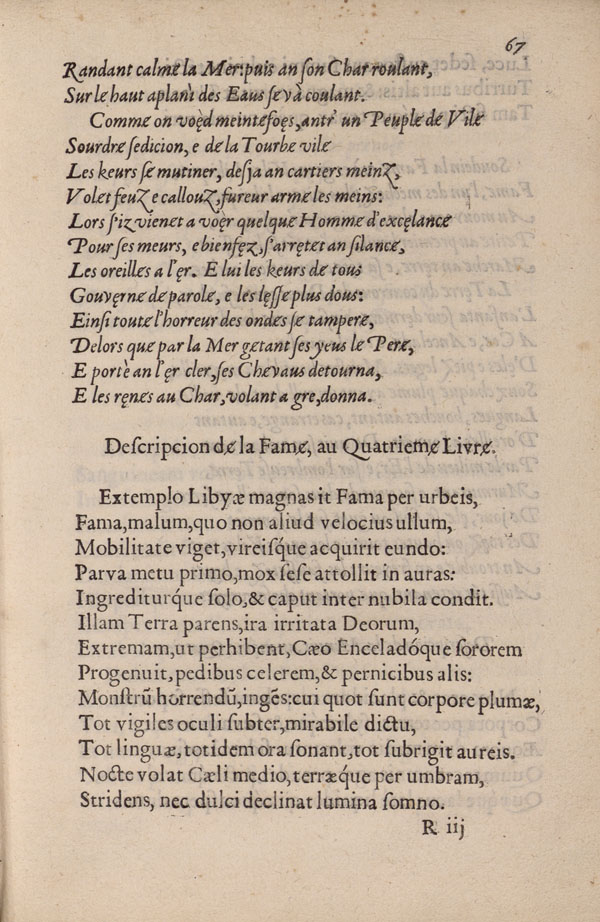 67
Randant calmɇ la Mer: puis an ſon Char roulant,
Sur le haut aplani des Eaus ſe và coulant.
Comme on voęd meintefoęs, antr' un Peuple de Vile
Sourdre ſedicion, e de la Tourbe vile
Les keurs ſe mutiner, deſja an cartiers meinz,
Volet feuz e callouz, fureur arme les meins:
Lors ſ'iz vienet a voęr quelque Homme d'excęlance
Pour ſes meurs, e bienfęz, ſ'arrętet an ſilance,
Les oreilles a l'ęr. E lui les keurs de tous
Gouvęrne de parole, e les lęſſe plus dous:
Einſi toute l'horreur des ondes ſe tampere,
Delors que par la Mer getant ſes yeus le Pere,
E porte an l'ęr cler, ſes Chevaus detourna,
E les ręnes au Char, volant a gre, donna.
Deſcripcion dɇ la Famɇ, au Quatriemɇ Livrɇ.
Extemplo Libyæ magnas it Fama per urbeis,
Fama, malum, quo non aliud velocius ullum,
Mobilitate viget, vireiſq́ue acquirit eundo:
Parva metu primo, mox ſeſe attollit in auras:
Ingrediturq́ue ſolo, & caput inter nubila condit.
Illam Terra parens, ira irritata Deorum,
Extremam, ut perhibent, Cæo Enceladóque ſororem
Progenuit, pedibus celerem, & pernicibus alis:
Monſtrũ horrendũ, ingẽs: cui quot ſunt corpore plumæ,
Tot vigiles oculi ſubter, mirabile dictu,
Tot linguæ, totidem ora ſonant, tot ſubrigit aureis.
Nocte volat Cæli medio, terræq́ue per umbram,
Stridens, nec dulci declinat lumina ſomno.
R iij